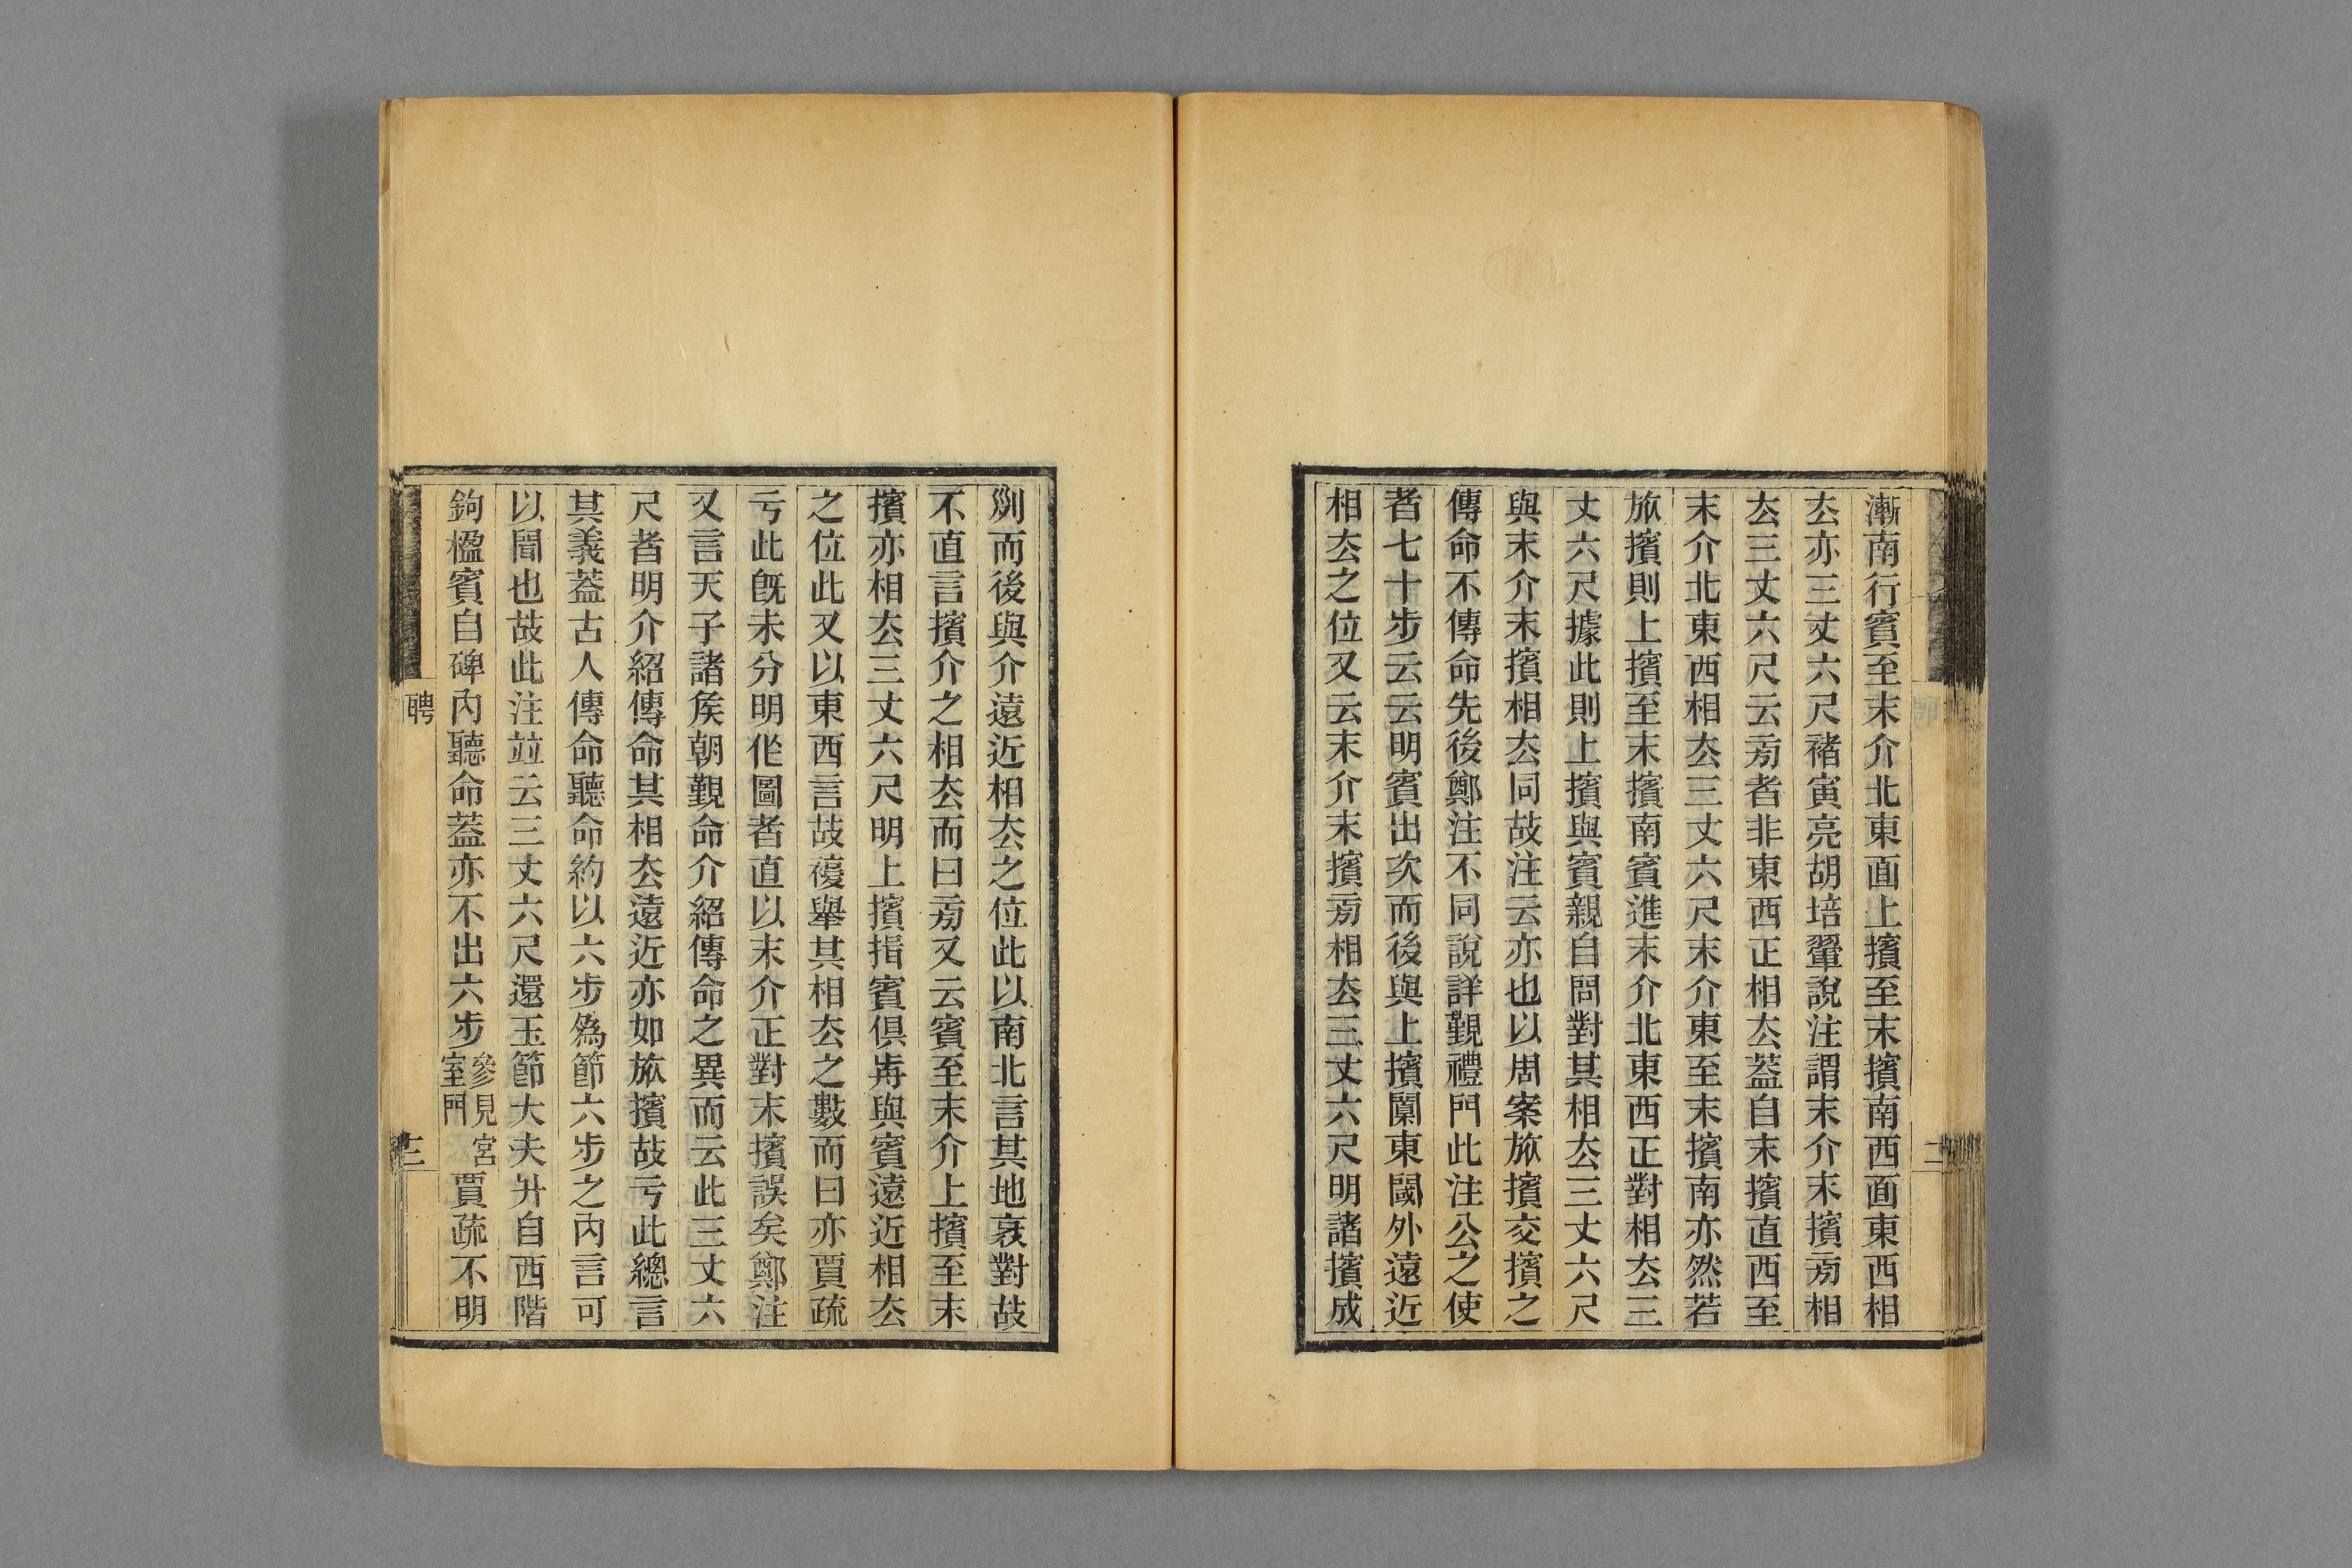 漸南行賓至末介北東面上擯至末擯南西面東西相
厺亦三丈六尺褚寅亮胡培翬說注謂末介末擯㫄相
厺三丈六尺云㫄者非東西正相厺蓋自末擯直西至
末介北東西相厺三丈六尺末介東至末擯南亦然若
旅擯則上擯至末擯南賓進末介北東西正對相厺三
丈六尺據此則上擯與賓親自問對其相厺三丈六尺
與末介末擯相厺同故注云亦也以周案旅擯交擯之
傳命不傳命先後鄭注不同說詳覲禮門此注公之使
者七十步云云明賓出次而後與上擯闑東閾外遠近
相厺之位又云末介末擯㫄相厺三丈六尺明諸擯成
列而後與介遠近相厺之位此以南北言其地衺對故
不直言擯介之相厺而曰㫄又云賓至末介上擯至末
擯亦相厺三丈六尺明上擯揖賓俱歬與賓遠近相厺
之位此又以東西言故複舉其相厺之數而曰亦賈疏
亏此旣未分明作圖者直以末介正對末擯誤矣鄭注
又言天子諸矦朝覲命介紹傳命之異而云此三丈六
尺者明介紹傳命其相厺遠近亦如旅擯故亏此總言
其義蓋古人傳命聽命約以六步爲節六步之內言可
以聞也故此注竝云三丈六尺還玉節大夫升自西階
鉤楹賓自碑內聽命蓋亦不出六步參見宮室門賈疏不明
聘